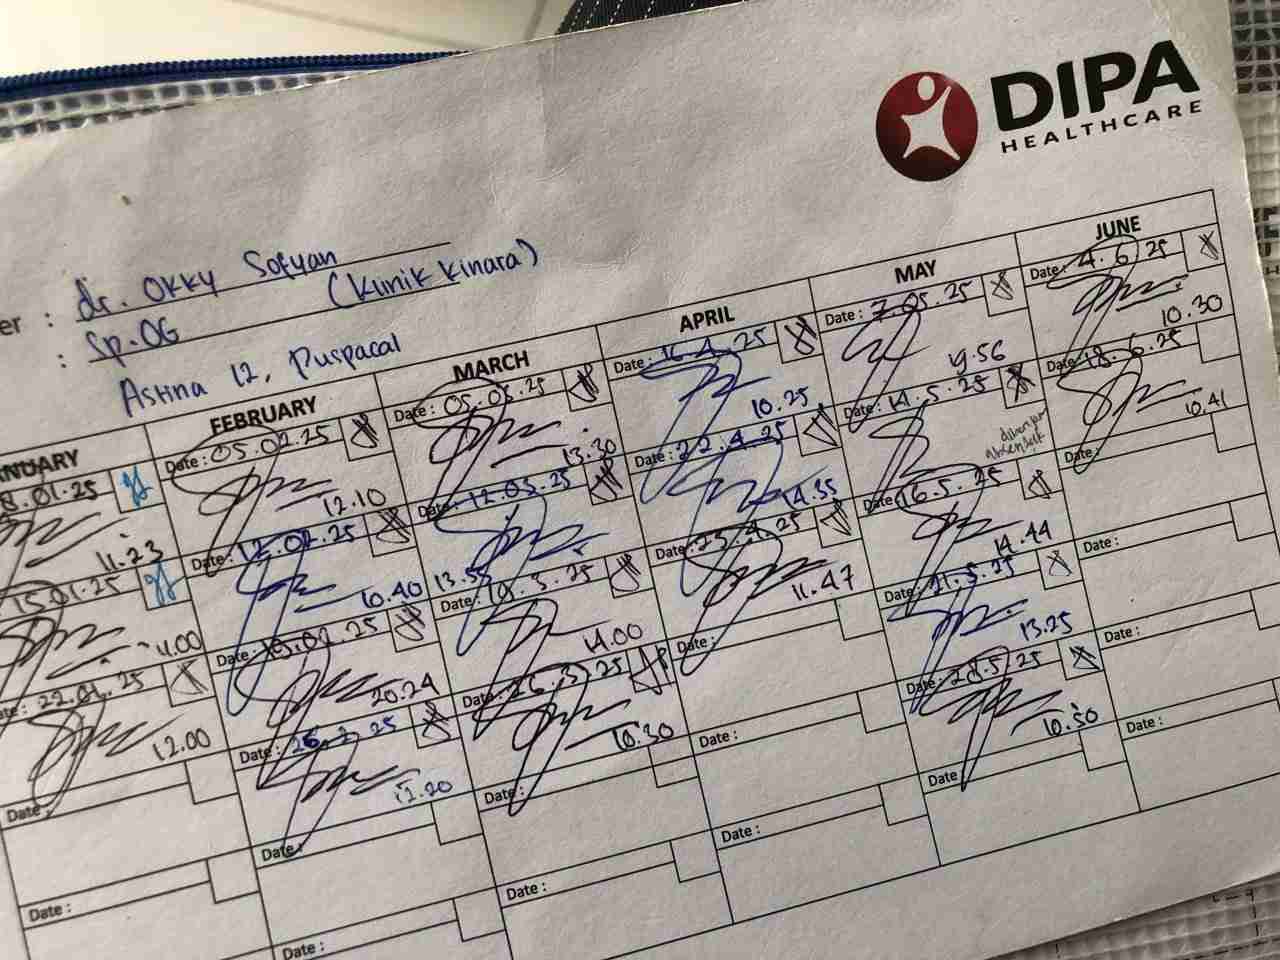 DIPA
HEALTHCARE
er : dr. Okky Sofyan
(Klinik Kinara)
: Sp.OG
Astina 12, Puspacal
NUARY
8.01.25
11.23
15.01.25
22.01.25
12.00
Date :
Date :
FEBRUARY
Date : 05.02.25
12.10
Date : 12.02.25
10.40
Date : 19.02.25
20.24
Date : 26.2.25
12.20
Date :
Date :
MARCH
Date : 05.03.25
13.30
Date : 12.03.25
13.55
Date : 19.3.25
14.00
Date : 26.3.25
10.30
Date :
Date :
APRIL
Date : 16.4.25
10.25
Date : 22.4.25
14.55
Date : 25.4.25
11.47
Date :
Date :
Date :
MAY
Date : 7.05.25
19.56
Date : 14.5.25
Date : 16.5.25
14.44
Date : 21.5.25
13.25
Date : 28.5.25
10.30
Date
JUNE
Date : 4.6.25
10.30
Date : 18.6.25
10.41
Date :
Date :
Date :
Date :